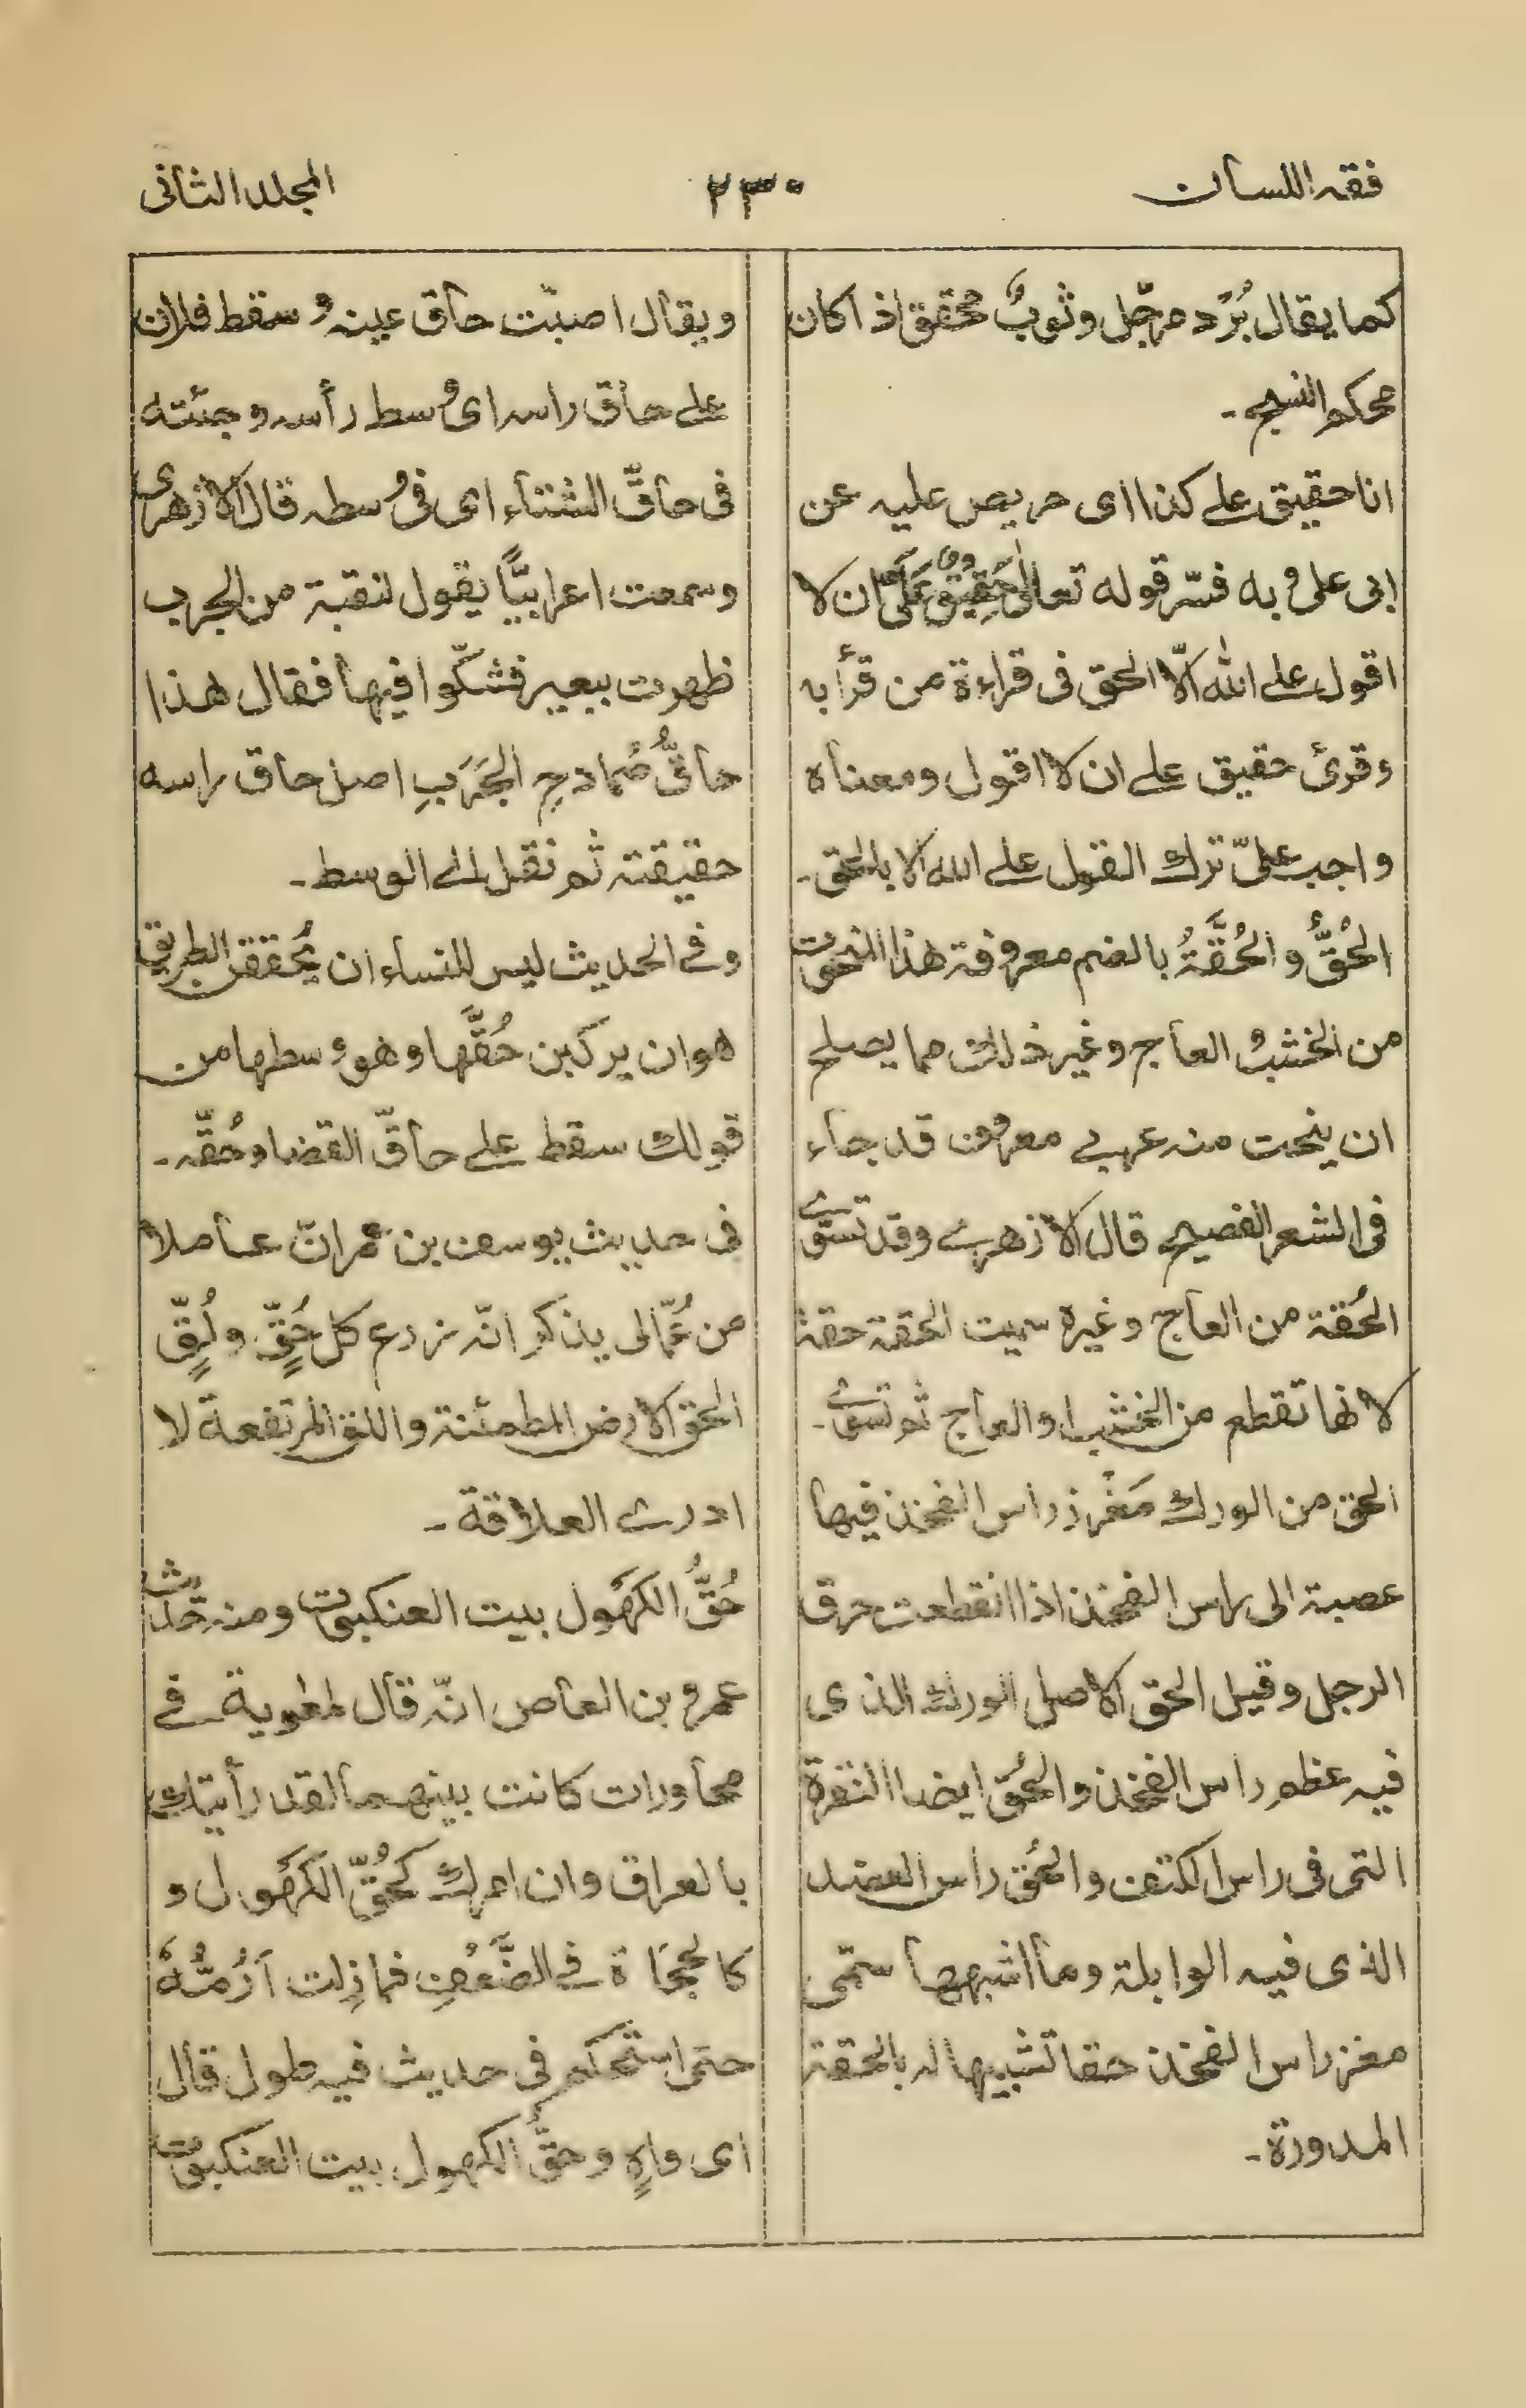 فقه اللسان
٢٣٠
المجلد الثانى
كما يقال بُرْد مرجّل وثوبٌ محقق اذا كان
محكم النسج -
انا حقيق على كذا اى حريص عليه عن
ابى على وبه فسّر قوله تعالى حَقِيْقٌ عَلَىٰ ان لا
اقول على الله الّا الحق فى قراءة من قرأ به
وقرئ حقيق على ان لا اقول ومعناه
واجب علىّ ترك القول على الله الا بالحق -
الحُقُّ و الحُقَّةُ بالضم معروفة هذا المنحوت
من الخشب و العاج وغير ذلك مما يصلح
ان ينحت منه عربى معروف قد جاء
فى الشعر الفصيح قال الازهرى وقد تسوّى
الحُقة من العاج وغيره سميت الحقة حقة
لانها تقطع من الخشب او العاج ثم تسوى -
الحق من الورك مَغْرِز راس الفخذ فيها
عصبة الى راس الفخذ اذا انقطعت حرق
الرجل وقيل الحق الاصل الورك الذى
فيه عظم راس الفخذ والحُق ايضا النقرة
التى فى راس الكتف والحُق راس العضد
الذى فيه الوابلة وما اشبهها سمّى
مغرز راس الفخذ حقا تشبيها له بالحقة
المدورة -
ويقال اصبت حاق عينه و سقط فلان
على حاق راسه اى وسط رأسه وجئته
فى حاقّ الشتاء اى فى وسطه قال الازهرى
وسمعت اعرابيًّا يقول لنقبة من الجرب
ظهرت ببعير فشكّوا فيها فقال هذا
حاقُّ صُمادحِ الجَرَبِ اصل حاق راسه
حقيقته ثم نقل الى الوسط -
وفى الحديث ليس للنساء ان يُحققن الطريق
هو ان يركبن حُقَّها وهو وسطها من
قولك سقط على حاقّ القفا وحُقّه -
فى حديث يوسف بن عمران عاملا
من عُمّالى يذكر انّه زرع كل حُقٍّ ولُقٍّ
الحق الارض المطمئنة واللق المرتفعة لا
ادرى العلاقة -
حُقُّ الكَهْوَل بيت العنكبوت ومنه حديث
عمرو بن العاص انّه قال لمعوية فى
محاورات كانت بينهما لقد رأيتك
بالعراق وان امرك كحُقّ الكَهْوَل و
كالحجَاة فى الضَّعْفِ فما زلت اَرُمُّهٗ
حتى استحكم فى حديث فيه طول قال
اى واهٍ وحقُّ الكهول بيت العنكبوت